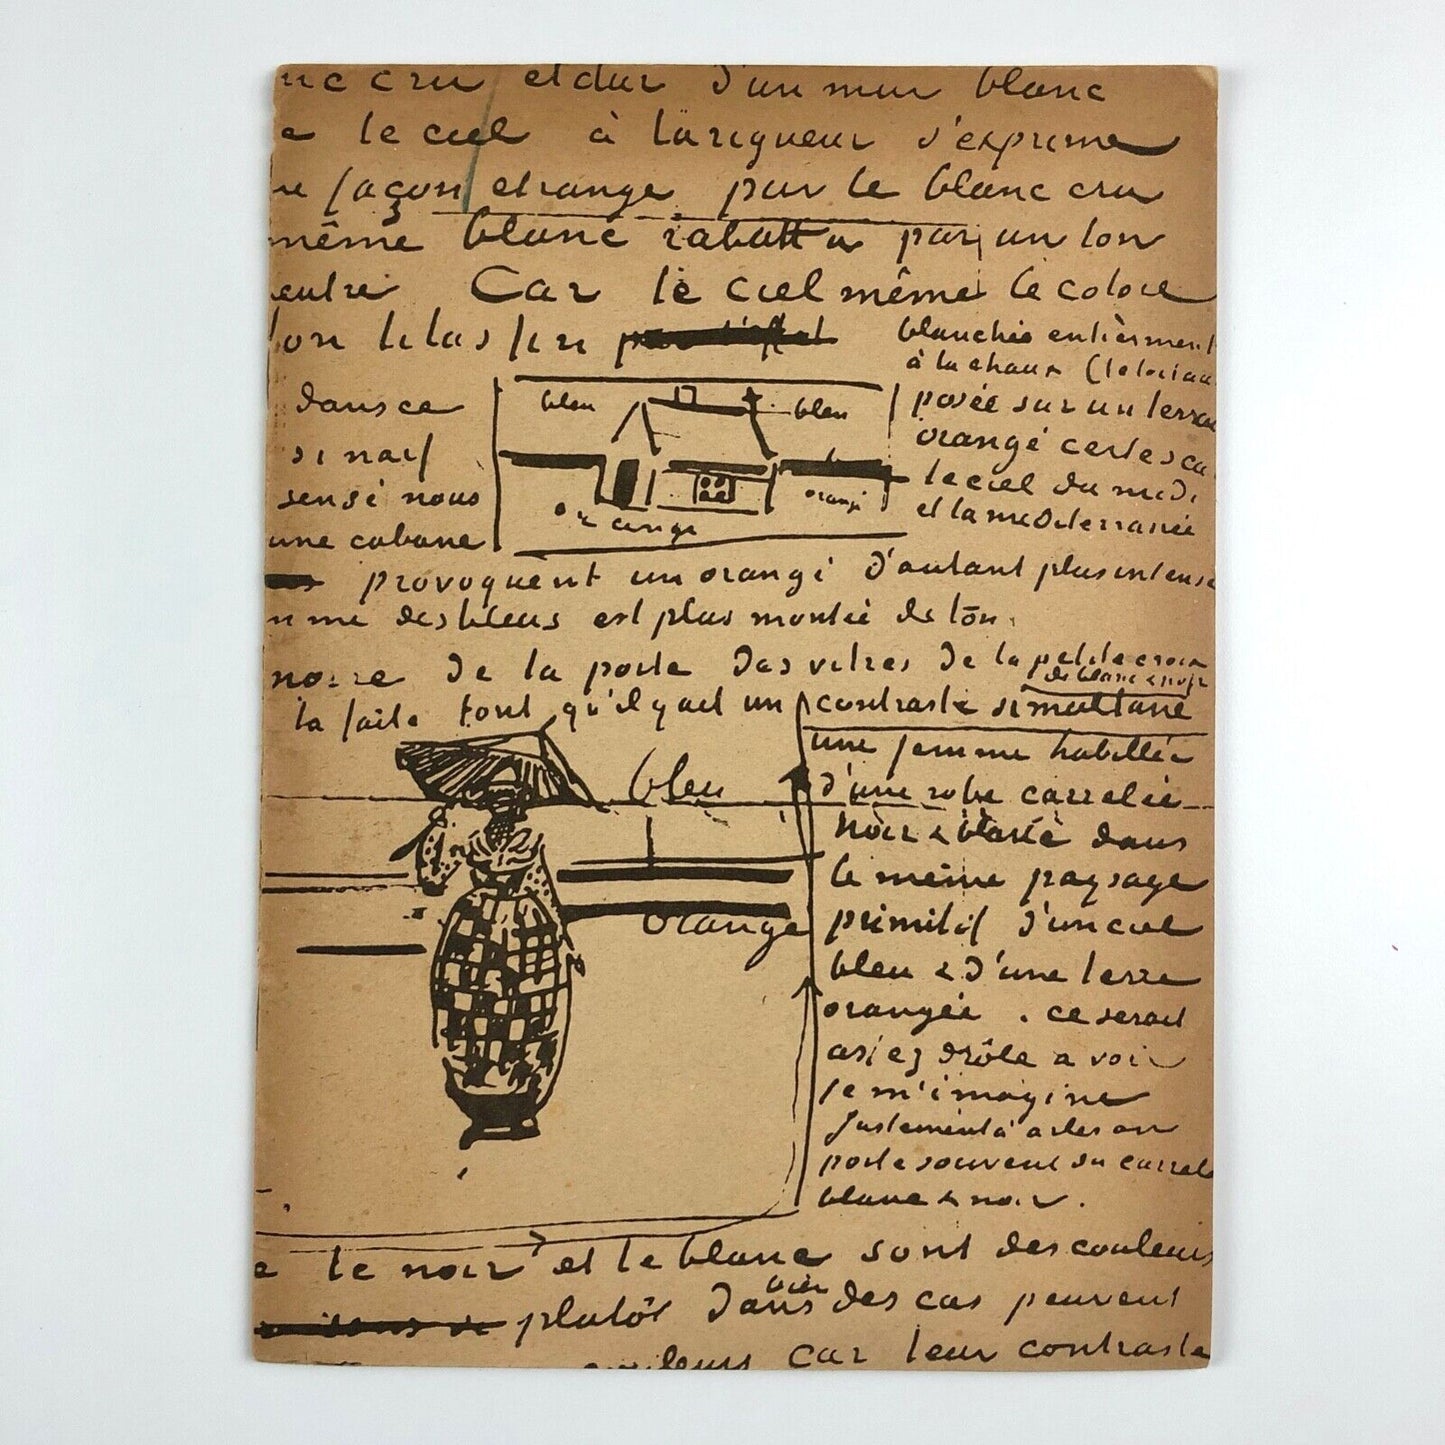 cru et dur d'un mur blanc
le ciel à la rigueur s'exprime
façon etrange par le blanc cru
même blanc rabattu par un ton
eutre Car le ciel même le colore
ton lilas fin
blanchie entièrement
à la chaux (
posée sur un terra
orangé certes ca
le ciel du midi
et la mediterranée
dans ce
si naif
sensé nous
une cabane
bleu
bleu
orangé
orangé
provoquent un orangé d'autant plus intense
mme des bleus est plus montée de ton.
noire de la porte des vitres de la petite croix
de blanc & noir
la faite font qu'il y ait un contraste simultané
bleu
orangé
une femme habillée
d'une robe carrelée
noir & blanc dans
le même paysage
primitif d'un ciel
bleu & d'une terre
orangée. ce serait
assez drôle a voir
je m'imagine
Justement à arles on
porte souvent du carrelé
blanc & noir.
e le noir et le blanc sont des couleurs
bien
plutôt dans des cas peuvent
couleurs car leur contraste